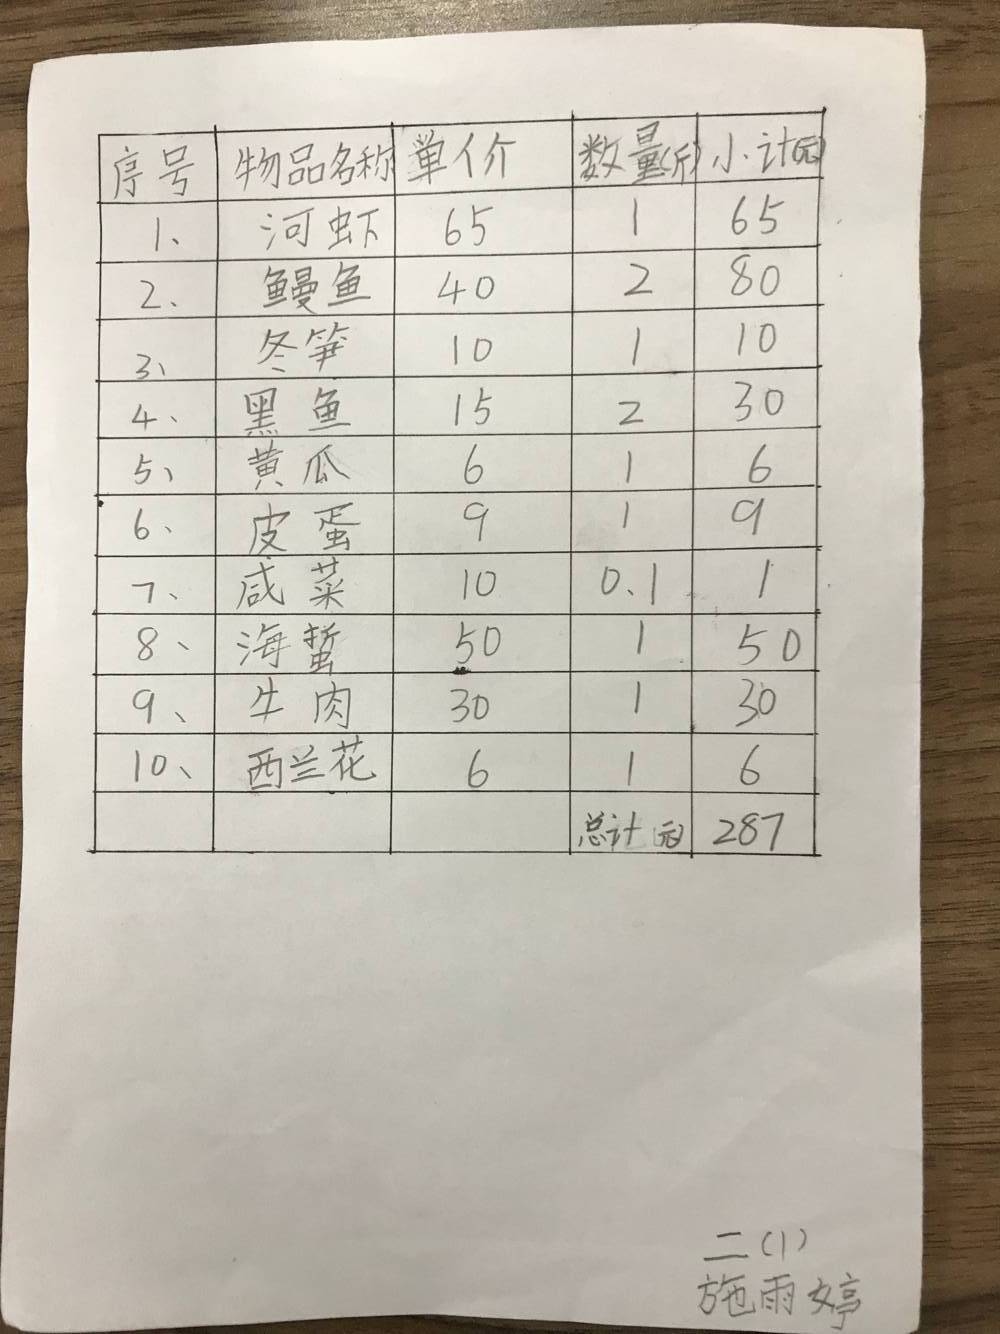 序号 物品名称 单价 数量(斤) 小计(元)
1、 河虾 65 1 65
2、 鳗鱼 40 2 80
3、 冬笋 10 1 10
4、 黑鱼 15 2 30
5、 黄瓜 6 1 6
6、 皮蛋 9 1 9
7、 咸菜 10 0.1 1
8、 海蜇 50 1 50
9、 牛肉 30 1 30
10、 西兰花 6 1 6
总计(元) 287
二(1)
施雨婷